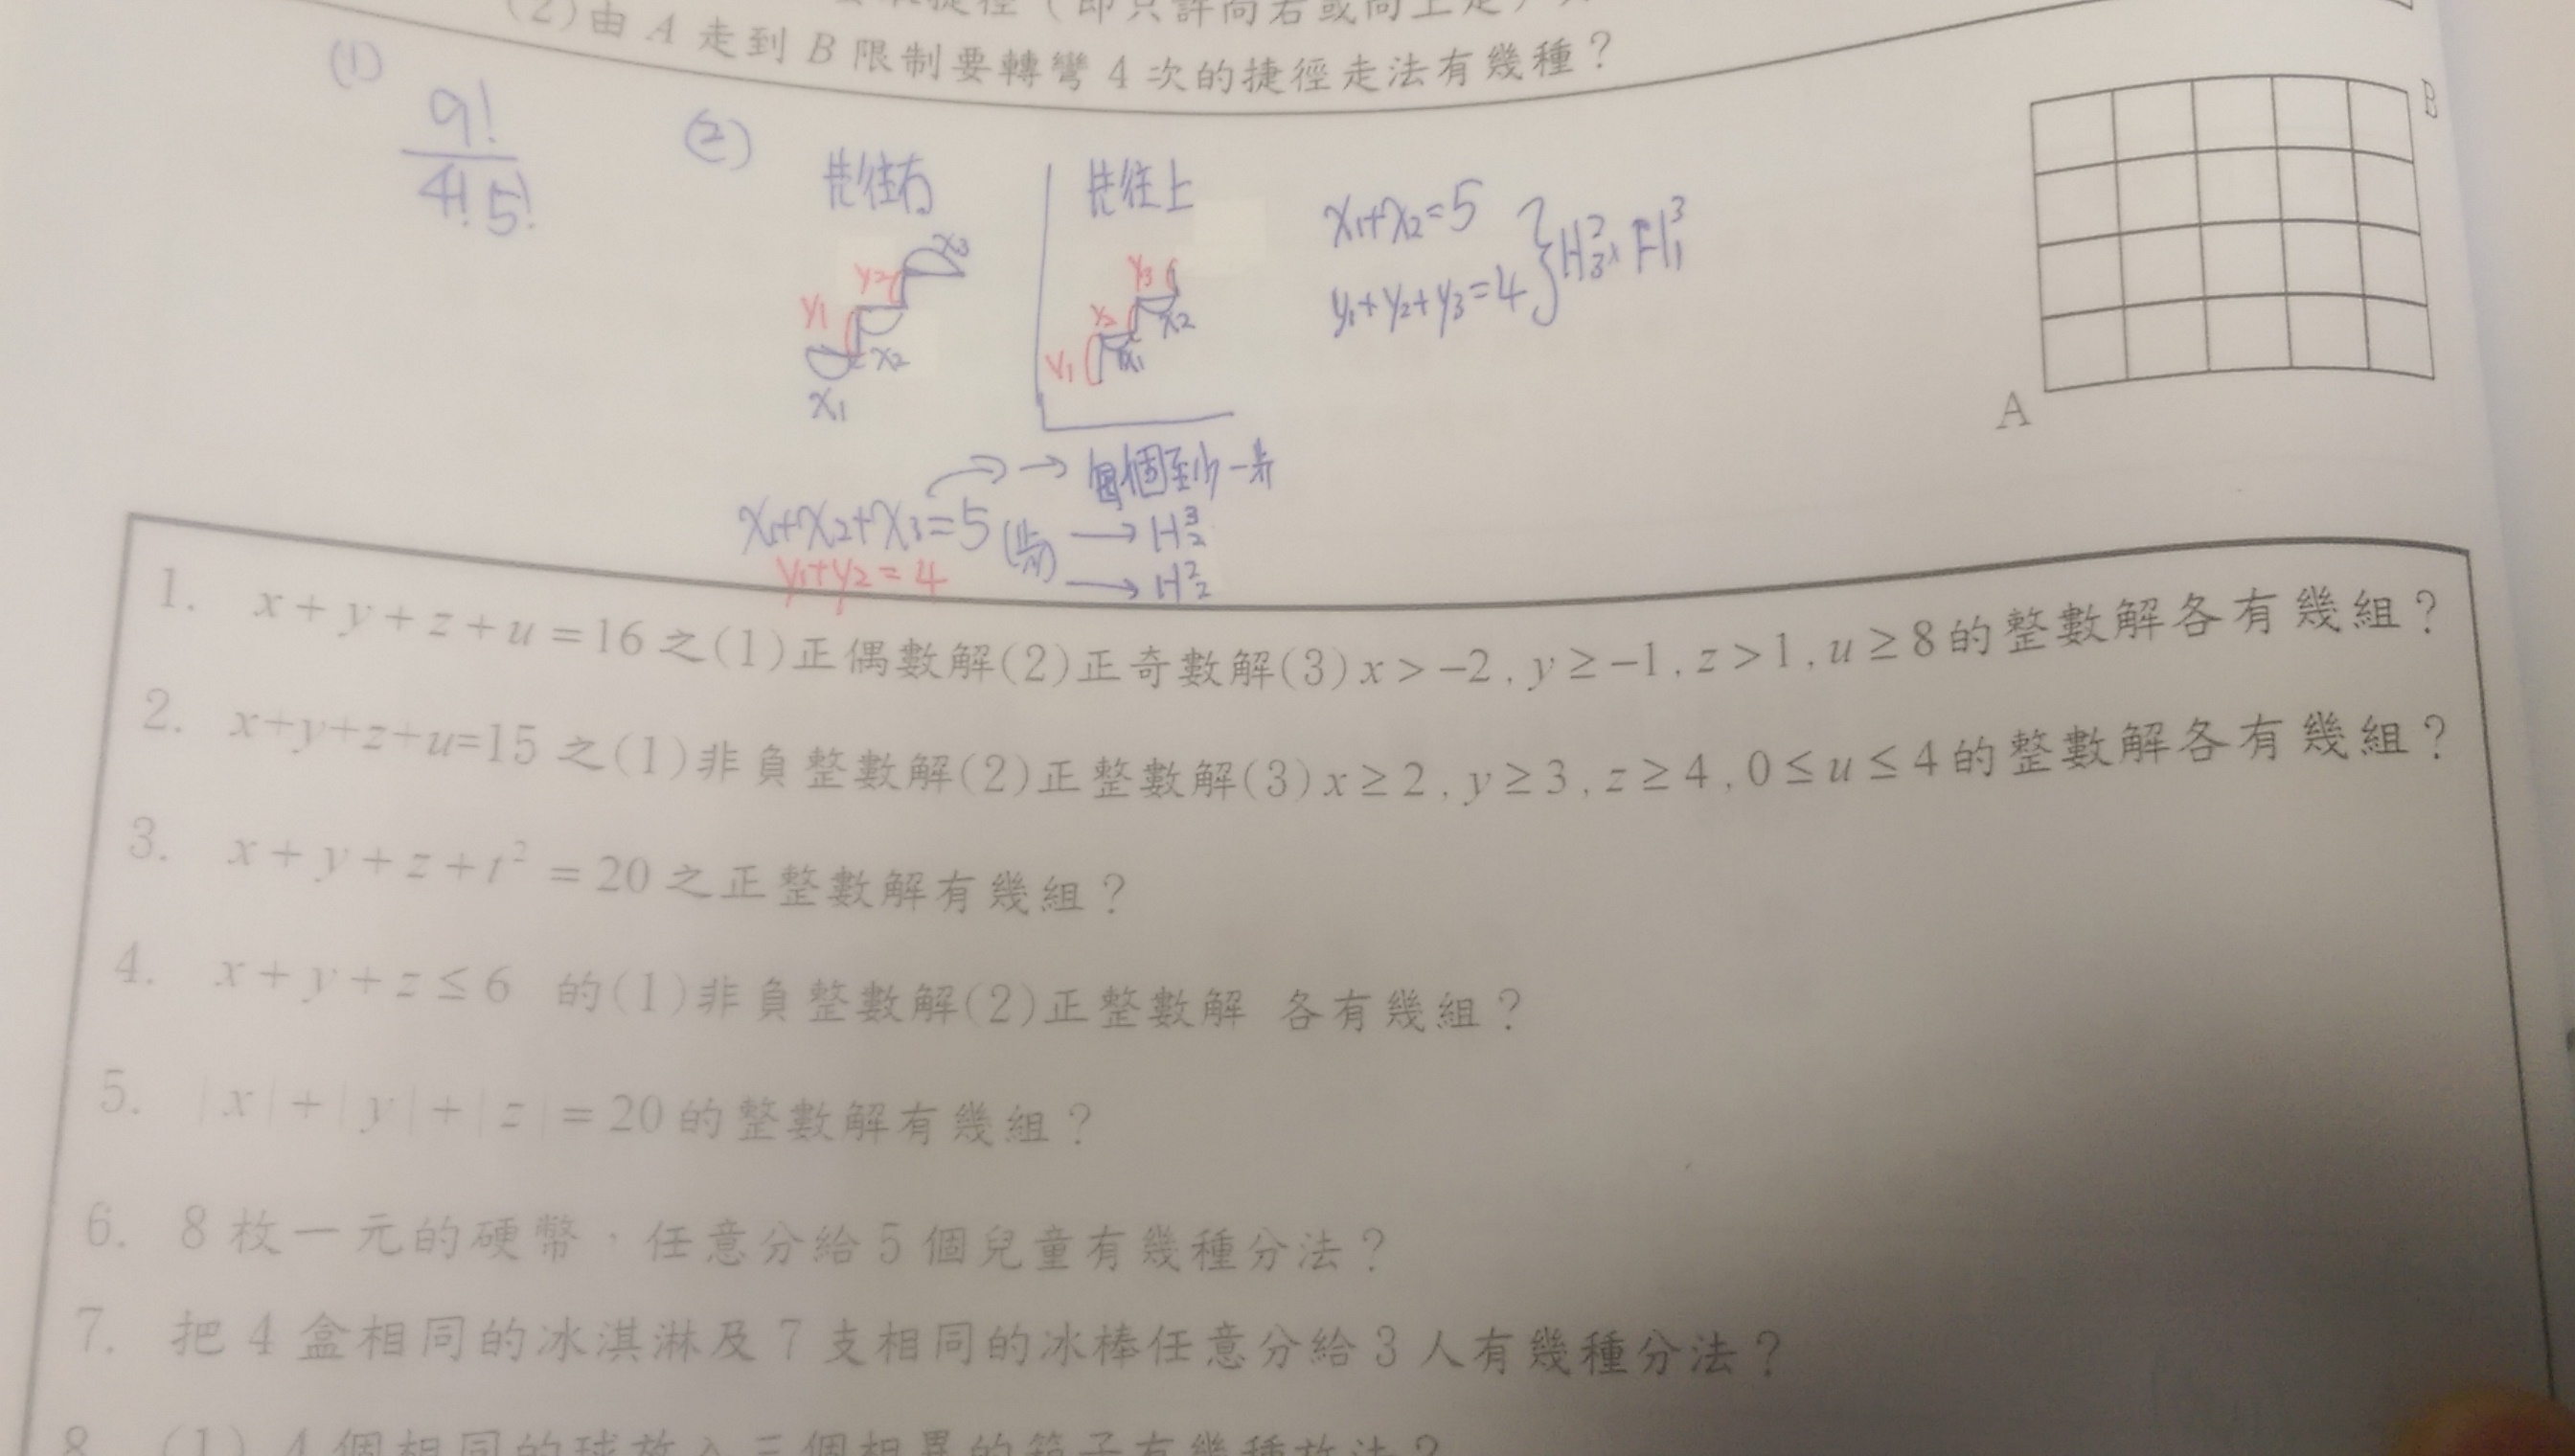 捷徑（即只許向右或向上走）
(2)由 A 走到 B 限制要轉彎 4 次的捷徑走法有幾種？
(1)
9!
4!5!
(2)
先往右
x3
y2
y1
x2
x1
先往上
y3
y2
x2
y1
x1
x1+x2=5
y1+y2+y3=4
H²₃×H³₁
B
A
→每個至少一步
x1+x2+x3=5(步)→H³₂
y1+y2=4→H²₂
1. x+y+z+u=16之(1)正偶數解(2)正奇數解(3)x>-2,y≥-1,z>1,u≥8的整數解各有幾組？
2. x+y+z+u=15之(1)非負整數解(2)正整數解(3)x≥2,y≥3,z≥4,0≤u≤4的整數解各有幾組？
3. x+y+z+t²=20之正整數解有幾組？
4. x+y+z≤6 的(1)非負整數解(2)正整數解 各有幾組？
5. |x|+|y|+|z|=20的整數解有幾組？
6. 8枚一元的硬幣，任意分給5個兒童有幾種分法？
7. 把4盒相同的冰淇淋及7支相同的冰棒任意分給3人有幾種分法？
8. (1) 4個相同的球放入三個相異的箱子有幾種放法？